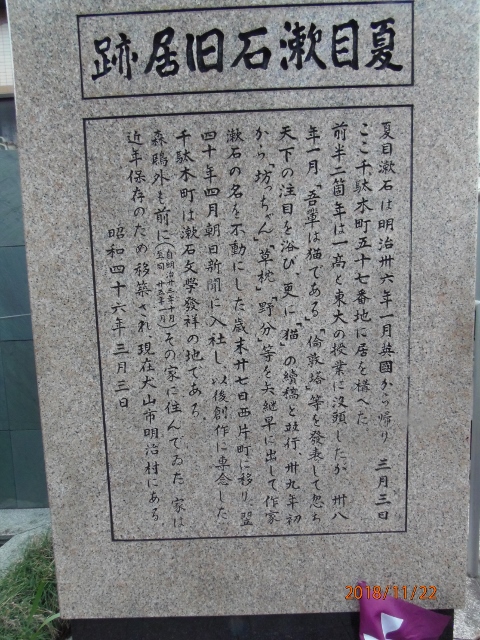 夏目漱石旧居跡
夏目漱石は明治卅六年一月英國から帰り 三月三日
ここ千駄木町五十七番地に居を構へた。
前半二箇年は一高と東大の授業に没頭したが 卅八
年一月「吾輩は猫である」「倫敦塔」等を發表して忽ち
天下の注目を浴び、更に「猫」の續稿と竝行、卅九年初
から「坊っちゃん」「草枕」「野分」等を矢継早に出して作家
漱石の名を不動にした歳末廿七日西片町に移り、翌
四十年四月朝日新聞に入社し、以後創作に専念した
千駄木町は漱石文學發祥の地である。
森鴎外も前に(自明治廿三年十月至同 廿五年一月)その家に住んでゐた 家は
近年保存のため移築され 現在犬山市明治村にある
昭和四十六年三月三日
2018/11/22